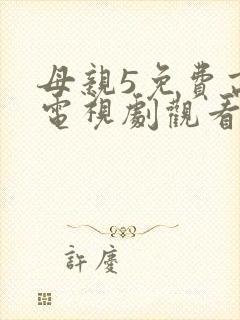 母親5免費
電視劇觀看
許慶